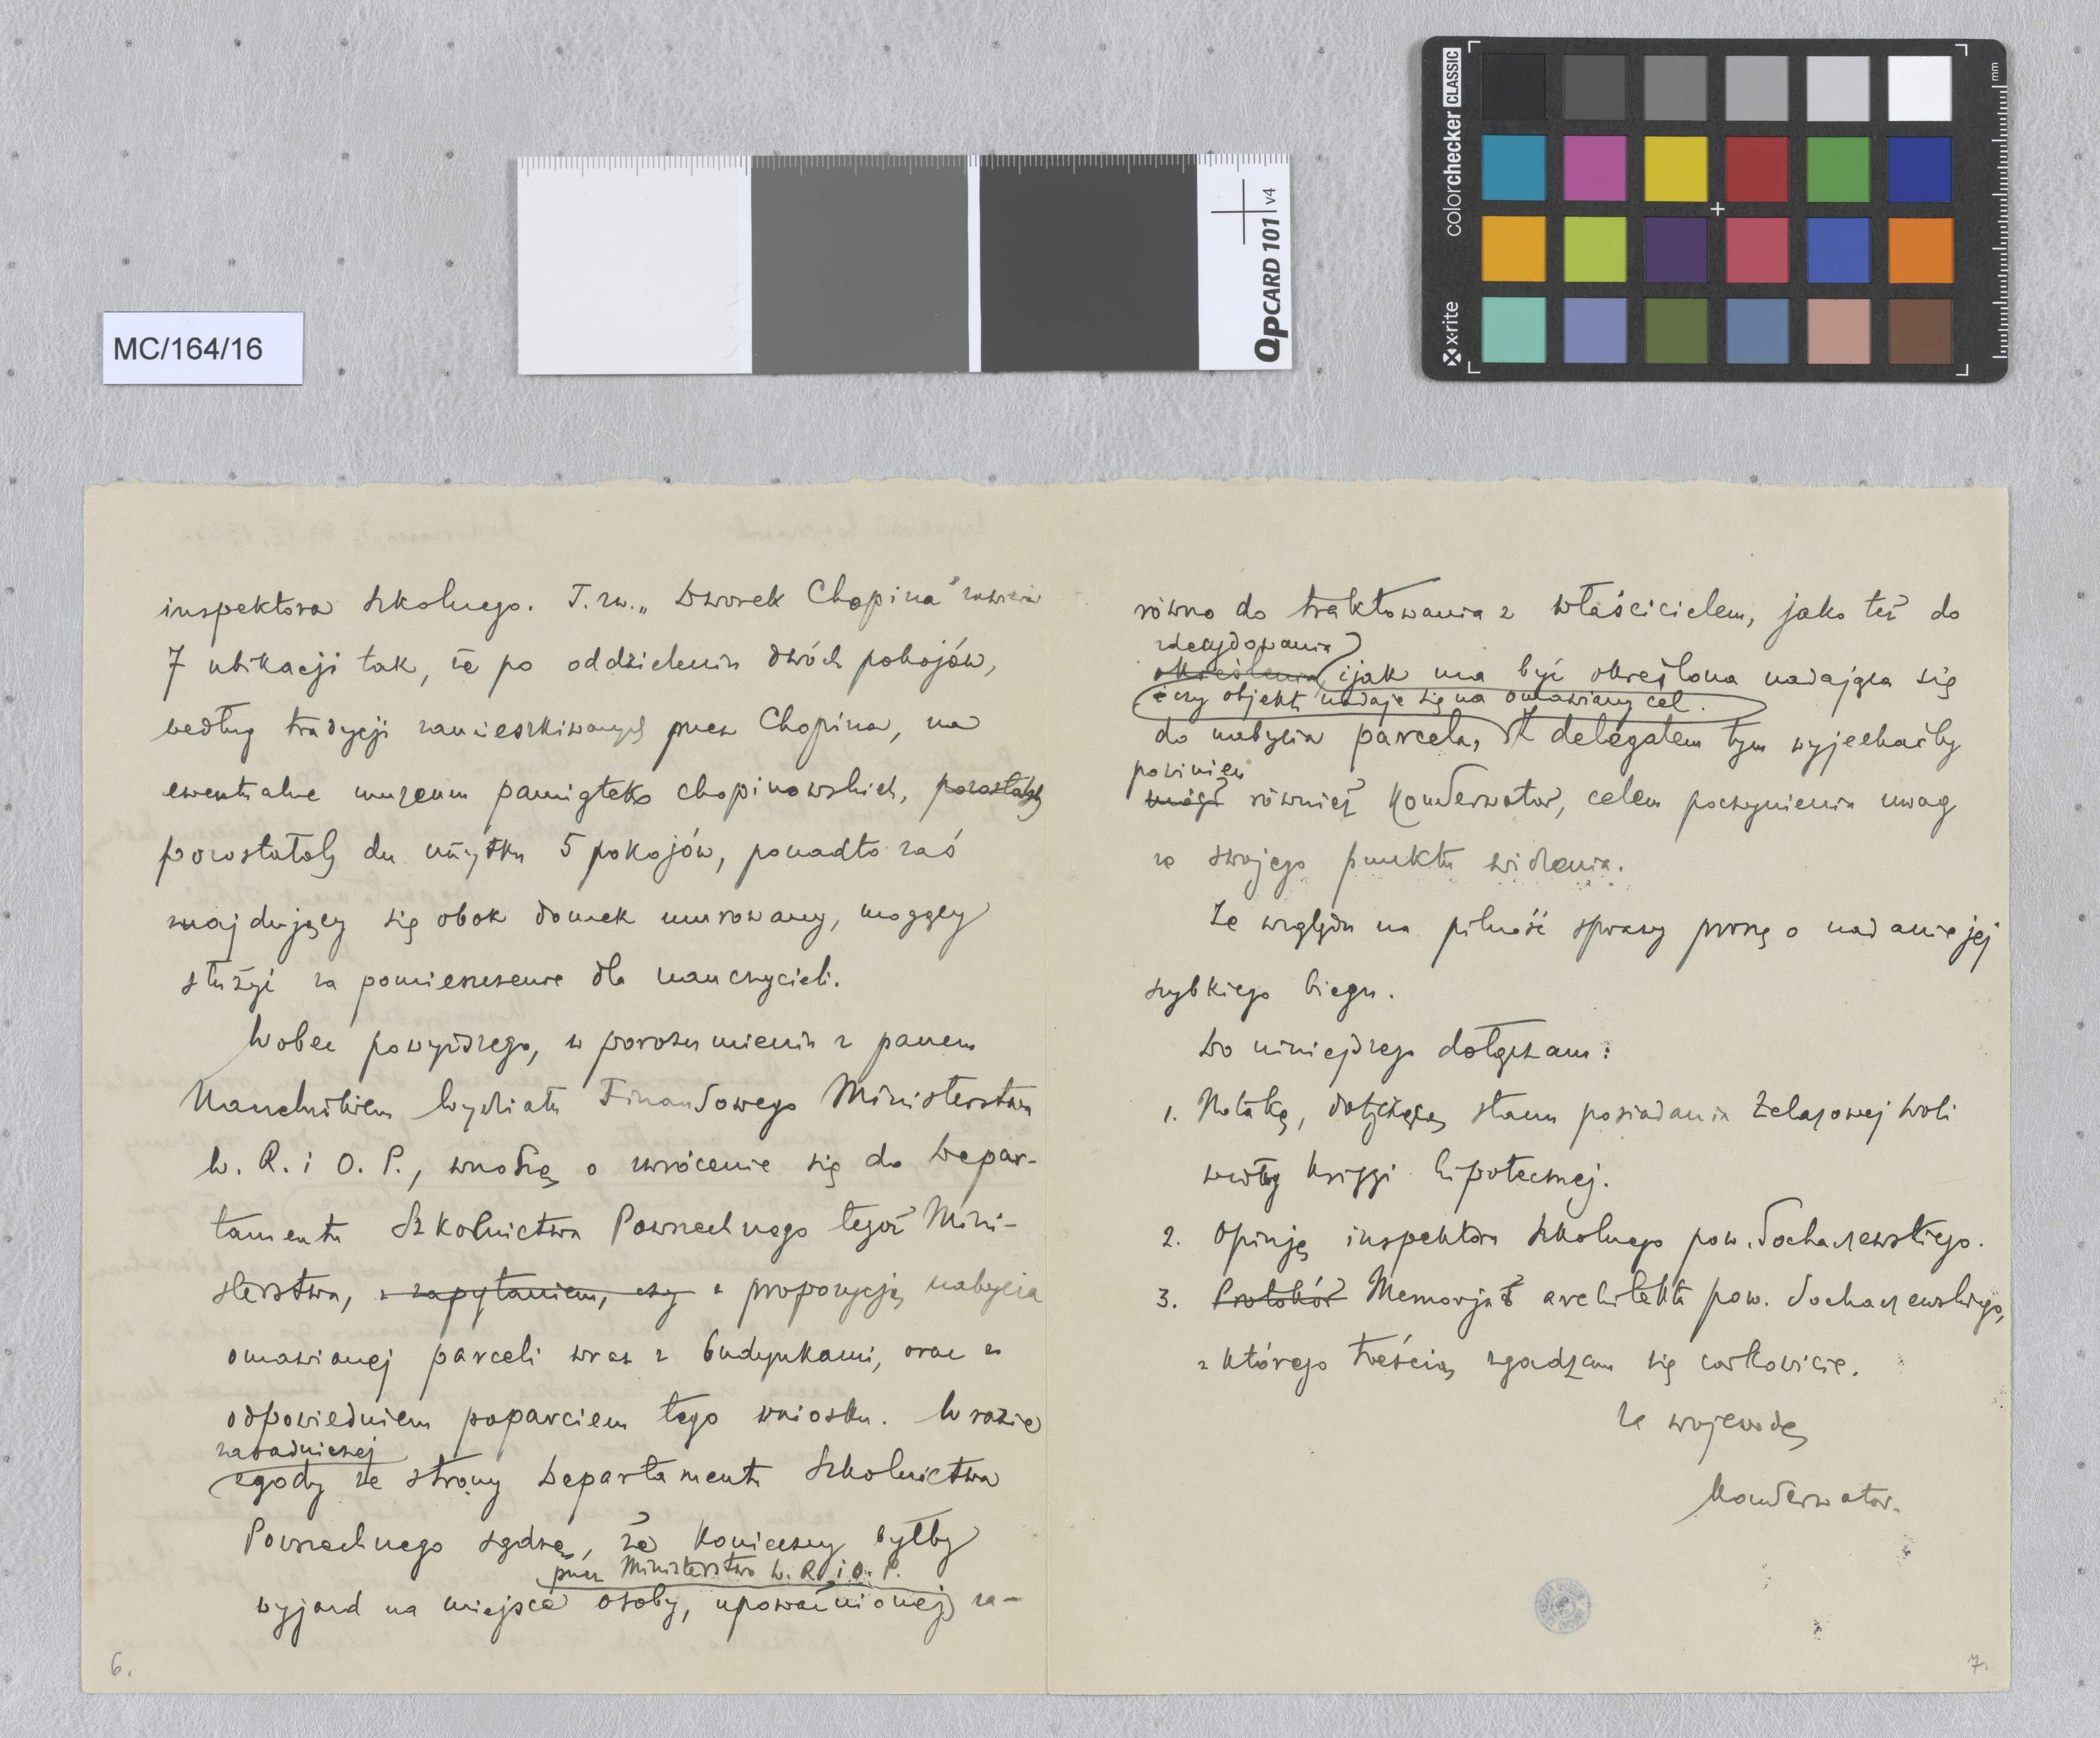 MC/164/16
QPCARD 101 v4
colorchecker CLASSIC
x-rite
mm
inspektora szkolnego. T. zw. „Dworek Chopina" zawiera
7 ubikacji tak, że po oddzieleniu dwóch pokojów,
według tradycji zamieszkiwanych przez Chopina, na
ewentualne muzeum pamiątek chopinowskich, pozostałoby
pozostałoby do użytku 5 pokojów, ponadto zaś
znajdujący się obok domek murowany, mogący
służyć za pomieszczenie dla nauczycieli.
Wobec powyższego, w porozumieniu z panem
Naczelnikiem Wydziału Finansowego Ministerstwa
W. R. i O. P., wnoszę o zwrócenie się do Depar-
tamentu Szkolnictwa Powszechnego tegoż Mini-
sterstwa, z zapytaniem, czy z propozycją nabycia
omawianej parceli wraz z budynkami, oraz z
odpowiedniem poparciem tego wniosku. W razie
zasadniczej
zgody ze strony Departamentu Szkolnictwa
Powszechnego sądzę, że konieczny byłby
przez Ministerstwo W. R. i O. P.
wyjazd na miejsce osoby, upoważnionej za-
6.
równo do traktowania z właścicielem, jako też do
zdecydowania
określenia jak ma być określona nadająca się
i czy objekt nadaje się na omawiany cel.
do nabycia parcela. Z delegatem tym wyjechałby
powinien
mógł również Konserwator, celem poczynienia uwag
ze swojego punktu widzenia.
Ze względu na pilność sprawy proszę o nadanie jej
szybkiego biegu.
Do niniejszego dołączam:
1. Notatkę, dotyczącą stanu posiadania Żelazowej Woli
według księgi hipotecznej.
2. Opinję inspektora szkolnego pow. Sochaczewskiego.
3. Protokół Memorjał architekta pow. Sochaczewskiego,
z którego treścią zgadzam się całkowicie.
Za wojewodę
Konserwator.
7.